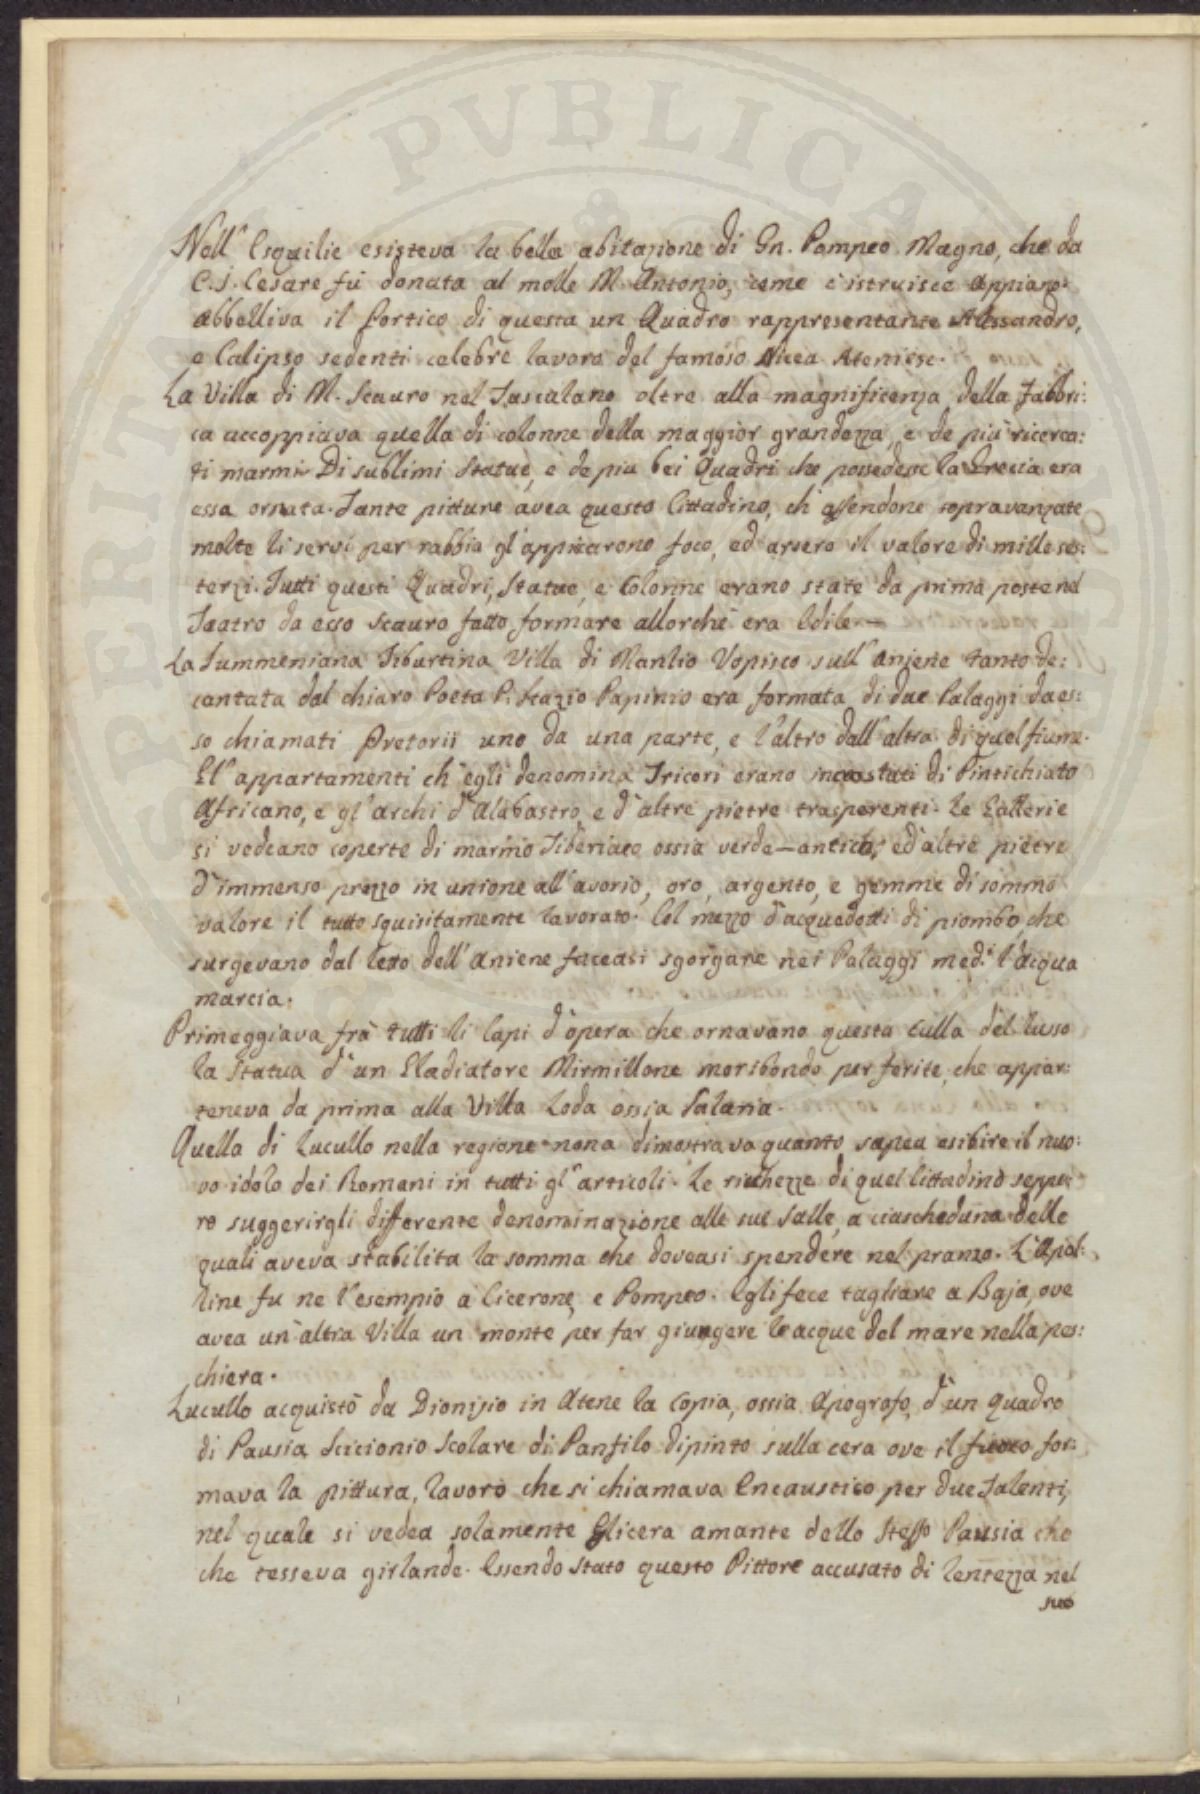 Nell' Esquilie esisteva la bella abitazione di Gn. Pompeo Magno, che da
C. J. Cesare fù donata al molle M. Antonio, come c'istruisce Appiano.
Abbelliva il Portico di questa un Quadro rappresentante Alessandro,
e Calipso sedenti celebre lavoro del famoso Nicea Ateniese.
La Villa di M. Scauro nel Tusculano oltre alla magnificenza della fabbri:
ca accoppiava quella di colonne della maggior grandezza, e de più ricerca:
ti marmi. Di sublimi Statue, e de piu bei Quadri che possedesse la Grecia era
essa ornata. Tante pitture avea questo Cittadino, ch'essendone sopravanzate
molte li servi per rabbia gl'appiccarono foco, ed arsero il valore di mille ses:
terzi. Tutti questi Quadri, Statue, e Colonne erano state da prima poste nel
Teatro da esso Scauro fatto formare allorchè era Edile—
La Summeniana Tiburtina Villa di Manlio Vopisco sull'Aniene tanto de:
cantata dal chiaro Poeta P. Stazio Papinio era formata di due Palaggi da es:
so chiamati Pretorii uno da una parte, e l'altro dall'altra di quel fiume.
Gl'appartamenti ch'egli denomina Tricori erano incrostati di Pintichiato
Africano, e gl'archi d'Alabastro, e d'altre pietre trasparenti. Le Gallerie
si vedeano coperte di marmo Tiberiaco ossia verde—antico, ed altre pietre
d'immenso prezzo in unione all'avorio, oro, argento, e gemme di sommo
valore il tutto squisitamente lavorato. Col mezzo d'acquedotti di piombo, che
surgevano dal letto dell'Aniene faceasi sgorgare nei Palaggi med.i l'acqua
marcia.
Primeggiava frà tutti li Capi d'opera che ornavano questa Culla del lusso
la Statua d'un Gladiatore Mirmillone moribondo per ferite, che appar:
teneva da prima alla Villa Loda ossia Salaria.
Quella di Lucullo nella regione nona dimostrava quanto sapea esibire il nuo:
vo idolo dei Romani in tutti gl'articoli. Le richezze di quel Cittadino seppe:
ro suggerirgli differente denominazione alle sue Salle, a ciascheduna delle
quali aveva stabilita la somma che doveasi spendere nel pranzo. L'Apol:
line fu ne l'esempio a Cicerone, e Pompeo. Egli fece tagliare a Baja, ove
avea un'altra Villa un monte per far giungere le acque del mare nella pes:
chiera.
Lucullo acquistò da Dionisio in Atene la Copia, ossia Apografo, d'un Quadro
di Pausia Scicionio Scolare di Panfilo dipinto sulla cera ove il fuoco for:
mava la pittura, lavoro che si chiamava Encaustico per due Talenti,
nel quale si vedea solamente Glicera amante dello Stesso Pausia che
che tesseva girlande. Essendo stato questo Pittore accusato di lentezza nel
suo